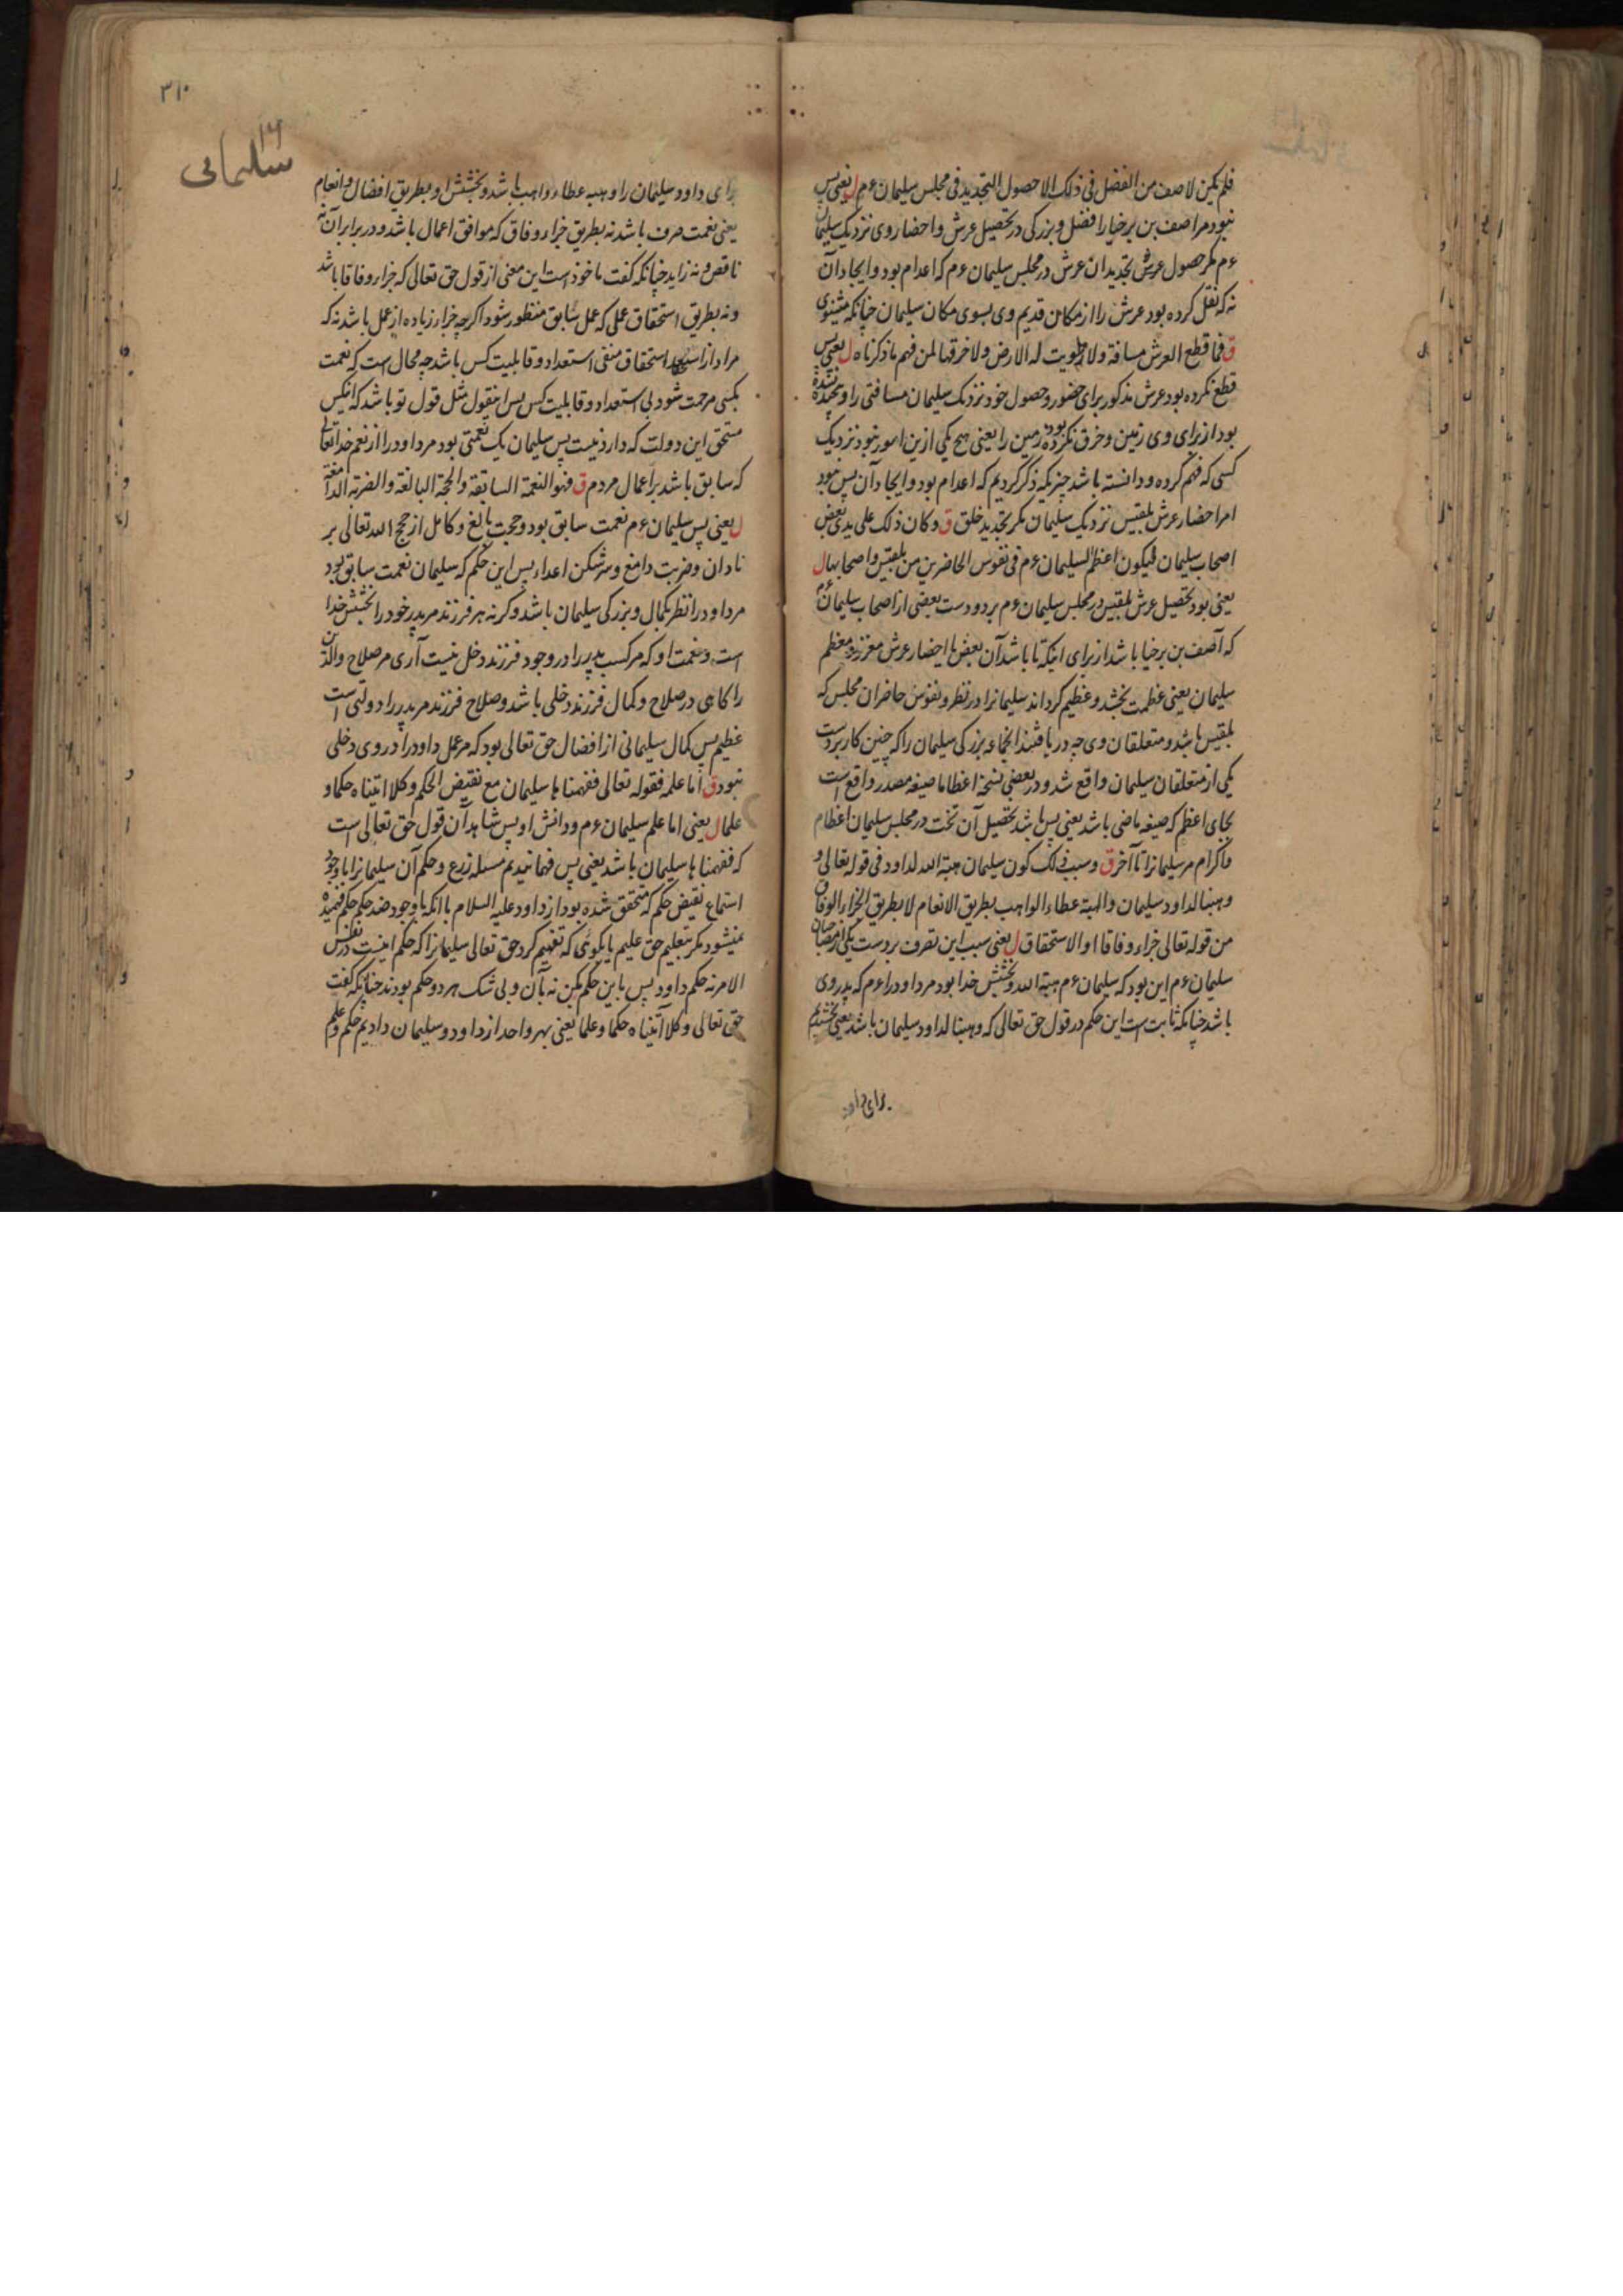 فلم یکن لاصف من الفضل فی ذلک الا حصول التجدید فی مجلس سلیمان ءم ل یعنی پس
نبود مر اصف بن برخیا را فضل و بزرکی در تحصیل عرش و احضار وی نزدیک سلیمان
ءم مکر حصول عرش بتجدید ان عرش در مجلس سلیمان ءم که اعدام بود و ایجاد آن
نه که نقل کرده بود عرش را از مکان قدیم وی بسوی مکان سلیمان چنانکه میشنوی
ق فما قطع العرش مسافة ولا زویت له الارض ولا خرقها لمن فهم ما ذکرناه ل یعنی پس
قطع نکرده بود عرش مذکور برای حضور و حصول خود نزدیک سلیمان مسافتی را و پیچیده نشده
بود از برای وی زمین و خرق نکرده بود زمین را یعنی هیچ یکی ازین امور نبود نزدیک
کسی که فهم کرده و دانسته باشد چیزیکه ذکر کردیم که اعدام بود و ایجاد آن پس نبود
امر احضار عرش بلقیس نزدیک سلیمان مکر بتجدید خلق ق و کان ذلک علی یدی بعض
اصحاب سلیمان لیکون اعظم لسلیمان ءم فی نفوس الحاضرین من بلقیس و اصحابها ل
یعنی بود تحصیل عرش بلقیس در مجلس سلیمان ءم بر دو دست بعضی از اصحاب سلیمان ءم
که آصف بن برخیا باشد از برای اینکه تا باشد آن بعض با احضار عرش معزز و معظم
سلیمان یعنی عظمت بخشد و عظیم کرداند سلیمانرا در نظر و نفوس حاضران مجلس که
بلقیس باشد و متعلقان وی چه دریافتند انجماعه بزرکی سلیمان را که چنین کار بر دست
یکی از متعلقان سلیمان واقع شد و در بعضی نسخه اعظاما صیغه مصدر واقع است
بجای اعظم که صیغه ماضی باشد یعنی پس باشد تحصیل آن تخت در مجلس سلیمان اعظام
و اکرام مر سلیمانرا تا آخر ق و سبب ذلک کون سلیمان هبة الله لداود فی قوله تعالی و
وهبنا لداود سلیمان والهبة عطاء الواهب بطریق الانعام لا بطریق الجزاء الوفاق
من قوله تعالی جزاء وفاقا او الاستحقاق ل یعنی سبب این تصرف بر دست یکی از مصاحبان
سلیمان ءم این بود که سلیمان ءم هبة الله و بخشش خدا بود مر داود را ءم که پدر وی
باشد چنانکه ثابت است این حکم در قول حق تعالی که وهبنا لداود سلیمان باشد یعنی بخشیدیم
برای داود
٣١٠
١٦
سلیمانی
برای داود سلیمان را و هبه عطاء واهب باشد و بخشش او بطریق افضال و انعام
یعنی نعمت صرف باشد نه بطریق جزاء وفاق که موافق اعمال باشد و در برابر آن نه
ناقص و نه زاید چنانکه کفت ماخوذ است این معنی از قول حق تعالی که جزاء وفاقا باشد
و نه بطریق استحقاق عملی که عمل سابق منظور شود اکرچه جزاء زیاده از عمل باشد نه که
مراد از استحقاق منفی استعداد و قابلیت کس باشد چه محال است که نعمت
بکسی مرحمت شود بی استعداد و قابلیت کس پس اینقول مثل قول تو باشد که انکس
مستحق این دولت که دارد نیست پس سلیمان یک نعمتی بود مر داود را از نعم خدا تعالی
که سابق باشد بر اعمال مردم ق فهو النعمة السابقة والحجة البالغة والضربة الدامغة
ل یعنی پس سلیمان ءم نعمت سابق بود و حجت بالغ و کامل از حجج الله تعالی بر
نادان و ضربت دامغ و سرشکن اعداء پس این حکم که سلیمان نعمت سابق بود
مر داود را نظر بکمال و بزرکی سلیمان باشد و کرنه هر فرزند مر پدر خود را بخشش خدا
است و نعمت او که مر کسب پدر را در وجود فرزند دخل نیست آری مر صلاح والدین
را کاهی در صلاح و کمال فرزند دخلی باشد و صلاح فرزند مر پدر را دولتی است
عظیم پس کمال سلیمانی از افضال حق تعالی بود که مر عمل داود را در وی دخلی
نبود ق اما علمه فقوله تعالی ففهمناها سلیمان مع نقیض الحکم وکلا اتیناه حکما و
علما ل یعنی اما علم سلیمان ءم و دانش او پس شاهد آن قول حق تعالی است
که ففهمناها سلیمان باشد یعنی پس فهمانیدیم مسئله زرع و حکم آن سلیمانرا با وجود
استماع نقیض حکم که متحقق شده بود از داود علیه السلام با انکه با وجود ضد حکم حکم فهمیده
نمیشود مکر بتعلیم حق علیم یا بکوئی که تفهیم کرد حق تعالی سلیمانرا که حکم اینست در نفس
الامر نه حکم داود پس باین حکم بکن نه بآن و بی شک هر دو حکم بودند چنانکه کفت
حق تعالی وکلا آتیناه حکما وعلما یعنی بهر واحد از داود و سلیمان دادیم حکم و علم